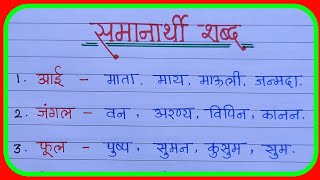 समानार्थी शब्द
1. आई – माता. माय, माऊली, जन्मदा.
2. जंगल – वन, अरण्य, विपिन, कानन.
3. फूल – पुष्प, सुमन, कुसुम, सुम.